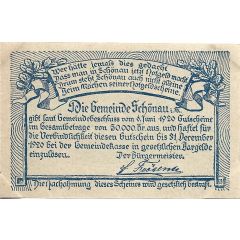 Wer hätte jemals dies gedacht
Dass man in Schönau jetzt Notgeld macht
Drum steht Schönau auch nicht alleine
Beim Machen seiner Notgeldscheine.
Die Gemeinde Schönau:
gibt laut Gemeindebeschluss vom 6. Juni 1920 Gutscheine
im Gesamtbetrage von 30.000 K aus, und haftet für
die Verbindlichkeit dieser Gutscheine bis 31. Dezember
1920 bei der Gemeindekasse in gesetzlichen Bargelde
einzulösen.
Der Bürgermeister:
Die Nachahmung dieses Scheines wird gesetzlich bestraft.